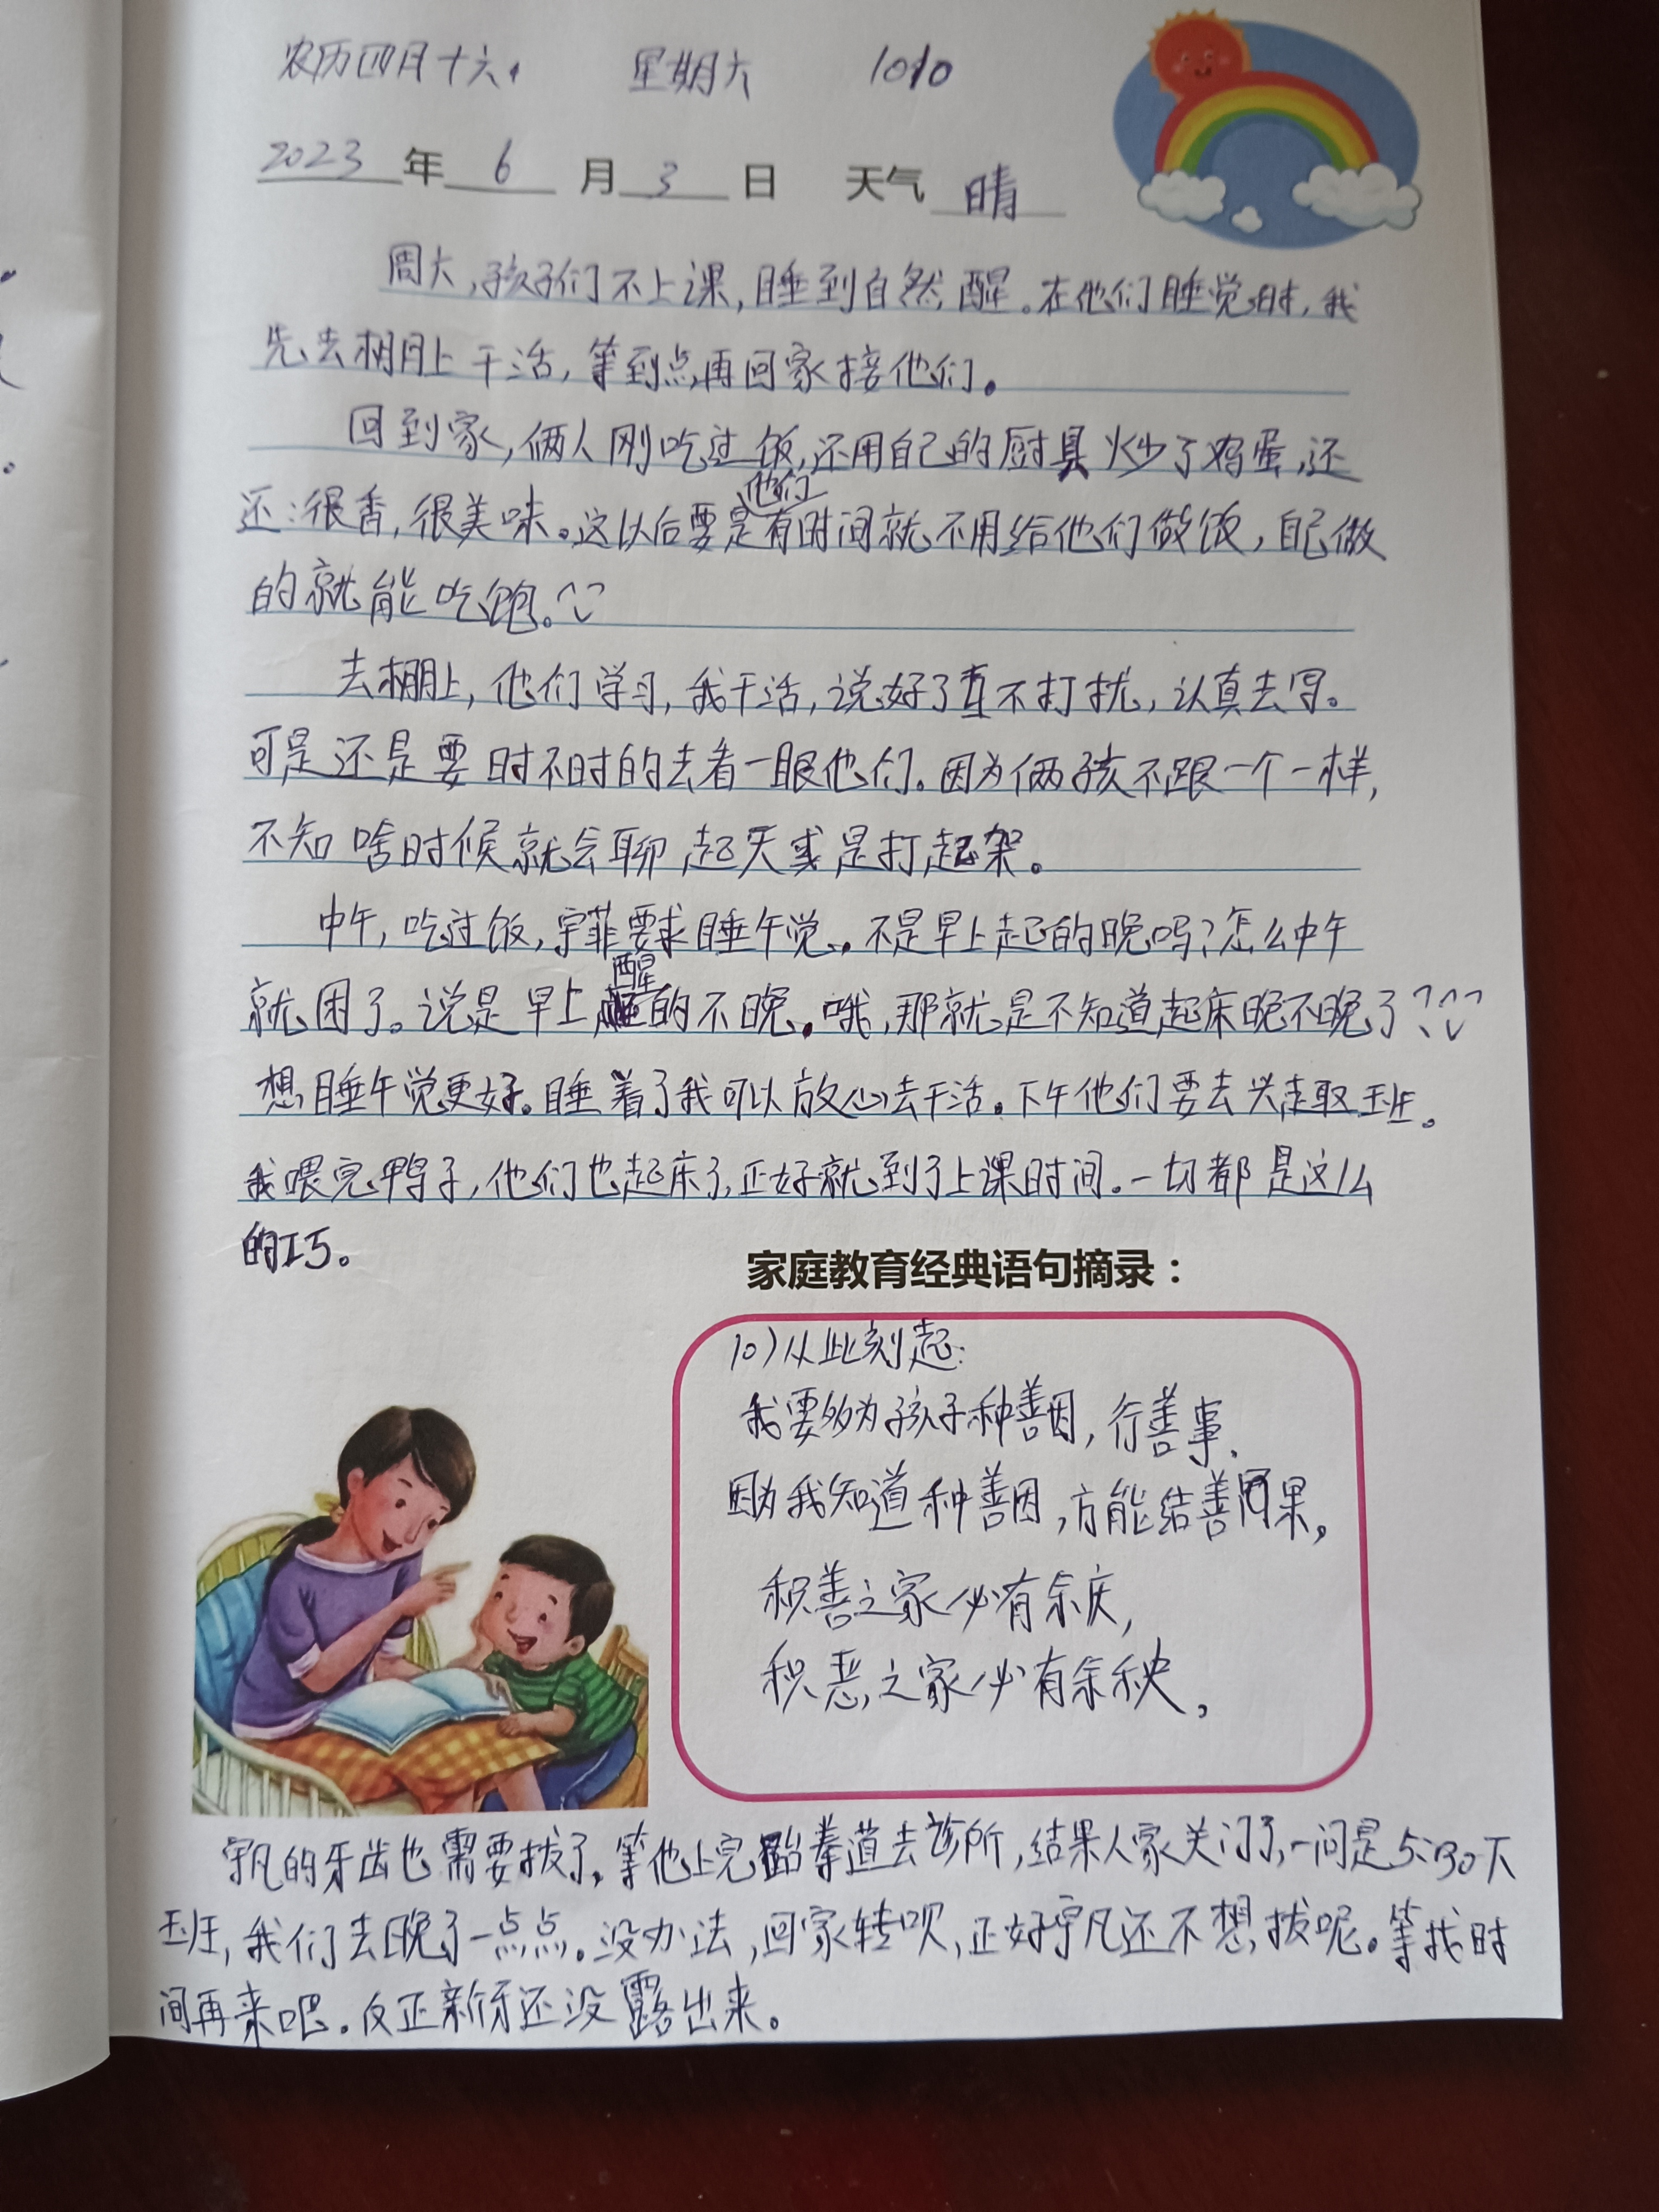 农历四月十六, 星期六 1010
2023年 6 月 3 日 天气 晴
周六,孩子们不上课,睡到自然醒。在他们睡觉时,我
先去棚上干活,等到点再回家接他们。
回到家,俩人刚吃过饭,还用自己的厨具炒了鸡蛋,还
还:很香,很美味。这以后要是他们有时间就不用给他们做饭,自己做
的就能吃饱。
去棚上,他们学习,我干活,说好了互不打扰,认真去写。
可是还是要时不时的去看一眼他们。因为俩孩不跟一个一样,
不知啥时候就会聊起天或是打起架。
中午,吃过饭,宇菲要求睡午觉。不是早上起的晚吗?怎么中午
就困了。说是早上醒的不晚。哦,那就是不知道起床晚不晚了?
想睡午觉更好。睡着了我可以放心去干活。下午他们要去兴趣班。
我喂完鸭子,他们也起床了,正好就到了上课时间。一切都是这么
的巧。
家庭教育经典语句摘录:
10)从此刻起:
我要多为孩子种善因,行善事.
因为我知道种善因,方能结善果,
积善之家必有余庆,
积恶之家必有余秧,
宇凡的牙齿也需要拔了,等他上完跆拳道去诊所,结果人家关门了,一问是5:30下
班,我们去晚了一点点。没办法,回家转呗,正好宇凡还不想拔呢。等找时
间再来吧.反正新牙还没露出来。